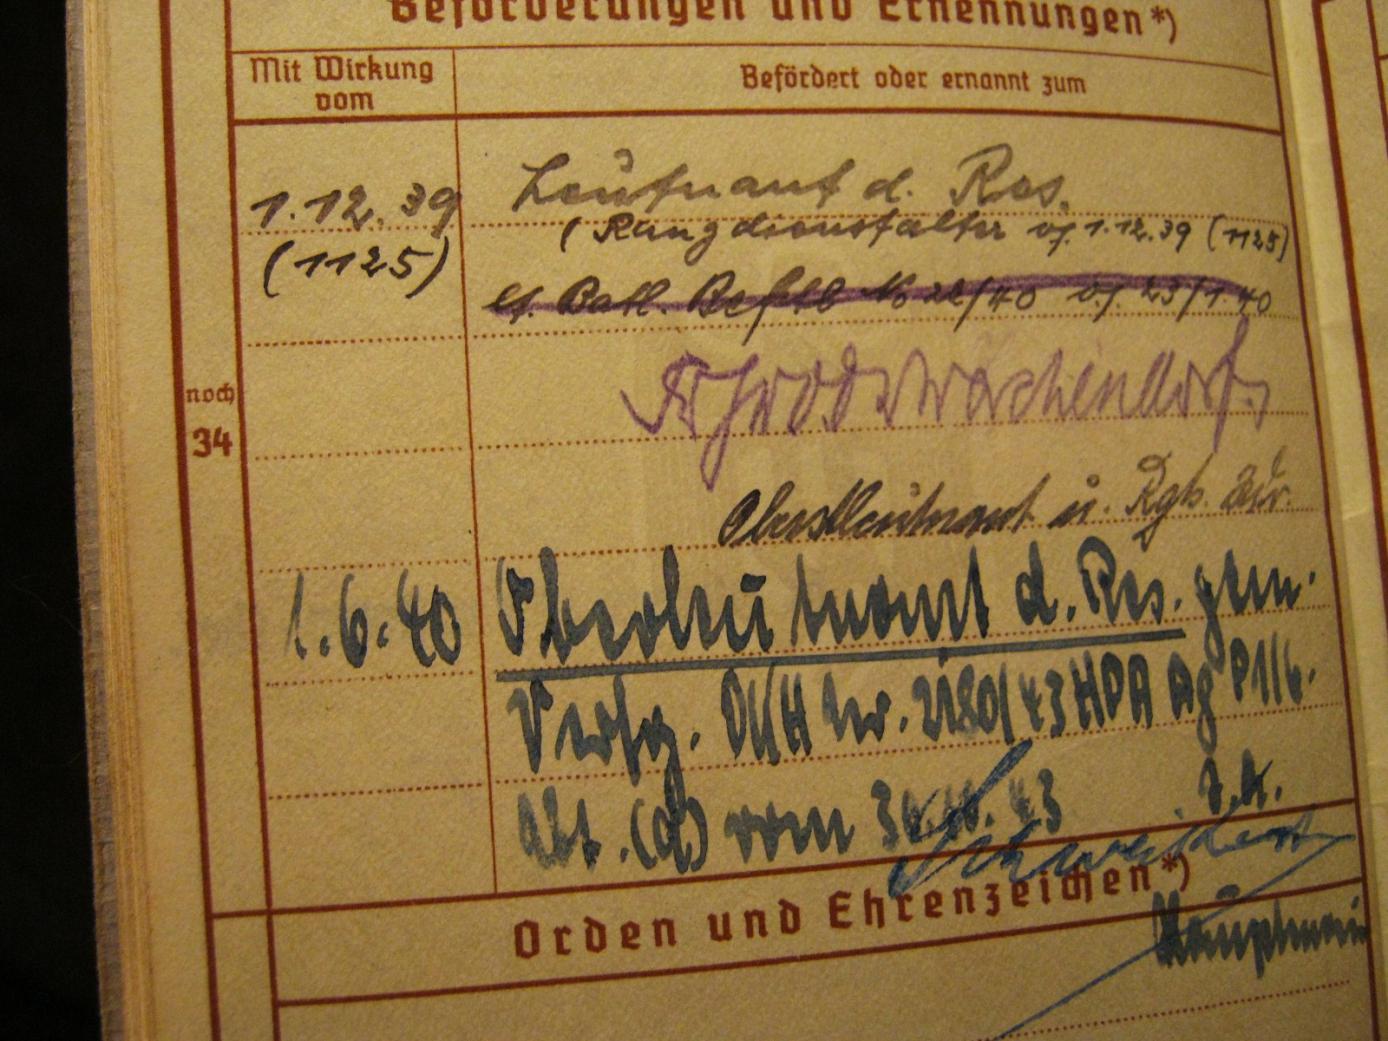 Beförderungen und Ernennungen*)
Mit Wirkung vom
Befördert oder ernannt zum
1.12.39
(1125)
Leutnant d. Res.
(Rangdienstalter v. 1.12.39 (1125)
lt. Batl. Befehl No 22/40 v. 23/1.40
noch
34
Oberstleutnant u. Rgts. Kdr.
1.6.40
Oberleutnant d. Res. gem.
Verfg. OKH Nr. 2180/43 HPA Ag P1/6.
Abt. (d) vom 43
J.A.
Orden und Ehrenzeichen*)
Hauptmann